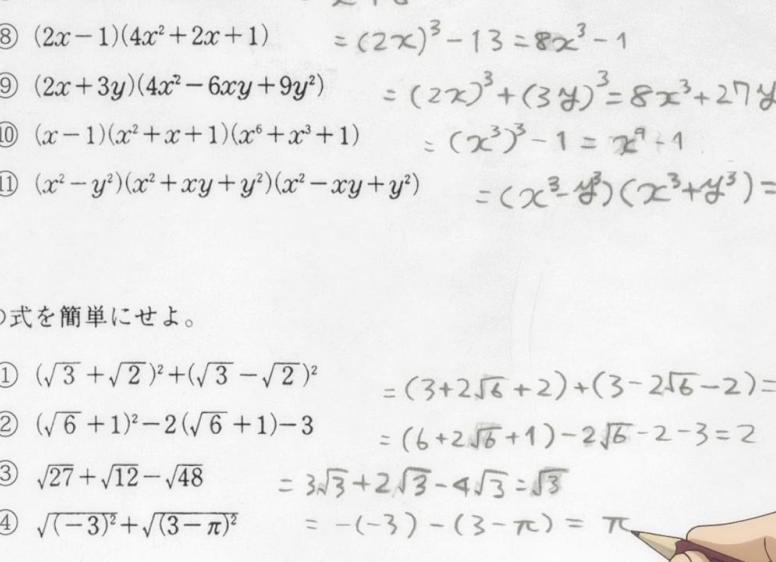 ⑧ (2x−1)(4x²+2x+1) = (2x)³−13 = 8x³−1
⑨ (2x+3y)(4x²−6xy+9y²) = (2x)³+(3y)³ = 8x³+27y
⑩ (x−1)(x²+x+1)(x⁶+x³+1) = (x³)³−1 = x⁹−1
⑪ (x²−y²)(x²+xy+y²)(x²−xy+y²) = (x³−y³)(x³+y³) =
の式を簡単にせよ。
① (√3+√2)²+(√3−√2)² = (3+2√6+2)+(3−2√6−2) =
② (√6+1)²−2(√6+1)−3 = (6+2√6+1)−2√6−2−3=2
③ √27+√12−√48 = 3√3+2√3−4√3=√3
④ √(−3)²+√(3−π)² = −(−3)−(3−π) = π